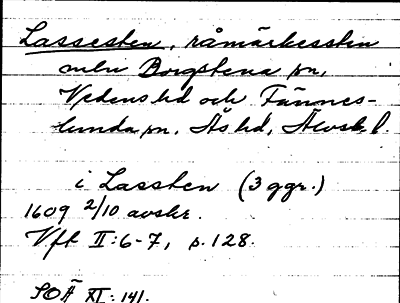 Lassesten, råmärkessten
mln Borgstena sn,
Vedens hd och Tännes-
lunda sn, Ås hd, Älvsb l.
i Lassten (3 ggr.)
1609 2/10 avskr.
Vft II:6-7, s. 128.
SOÄ XI: 141.